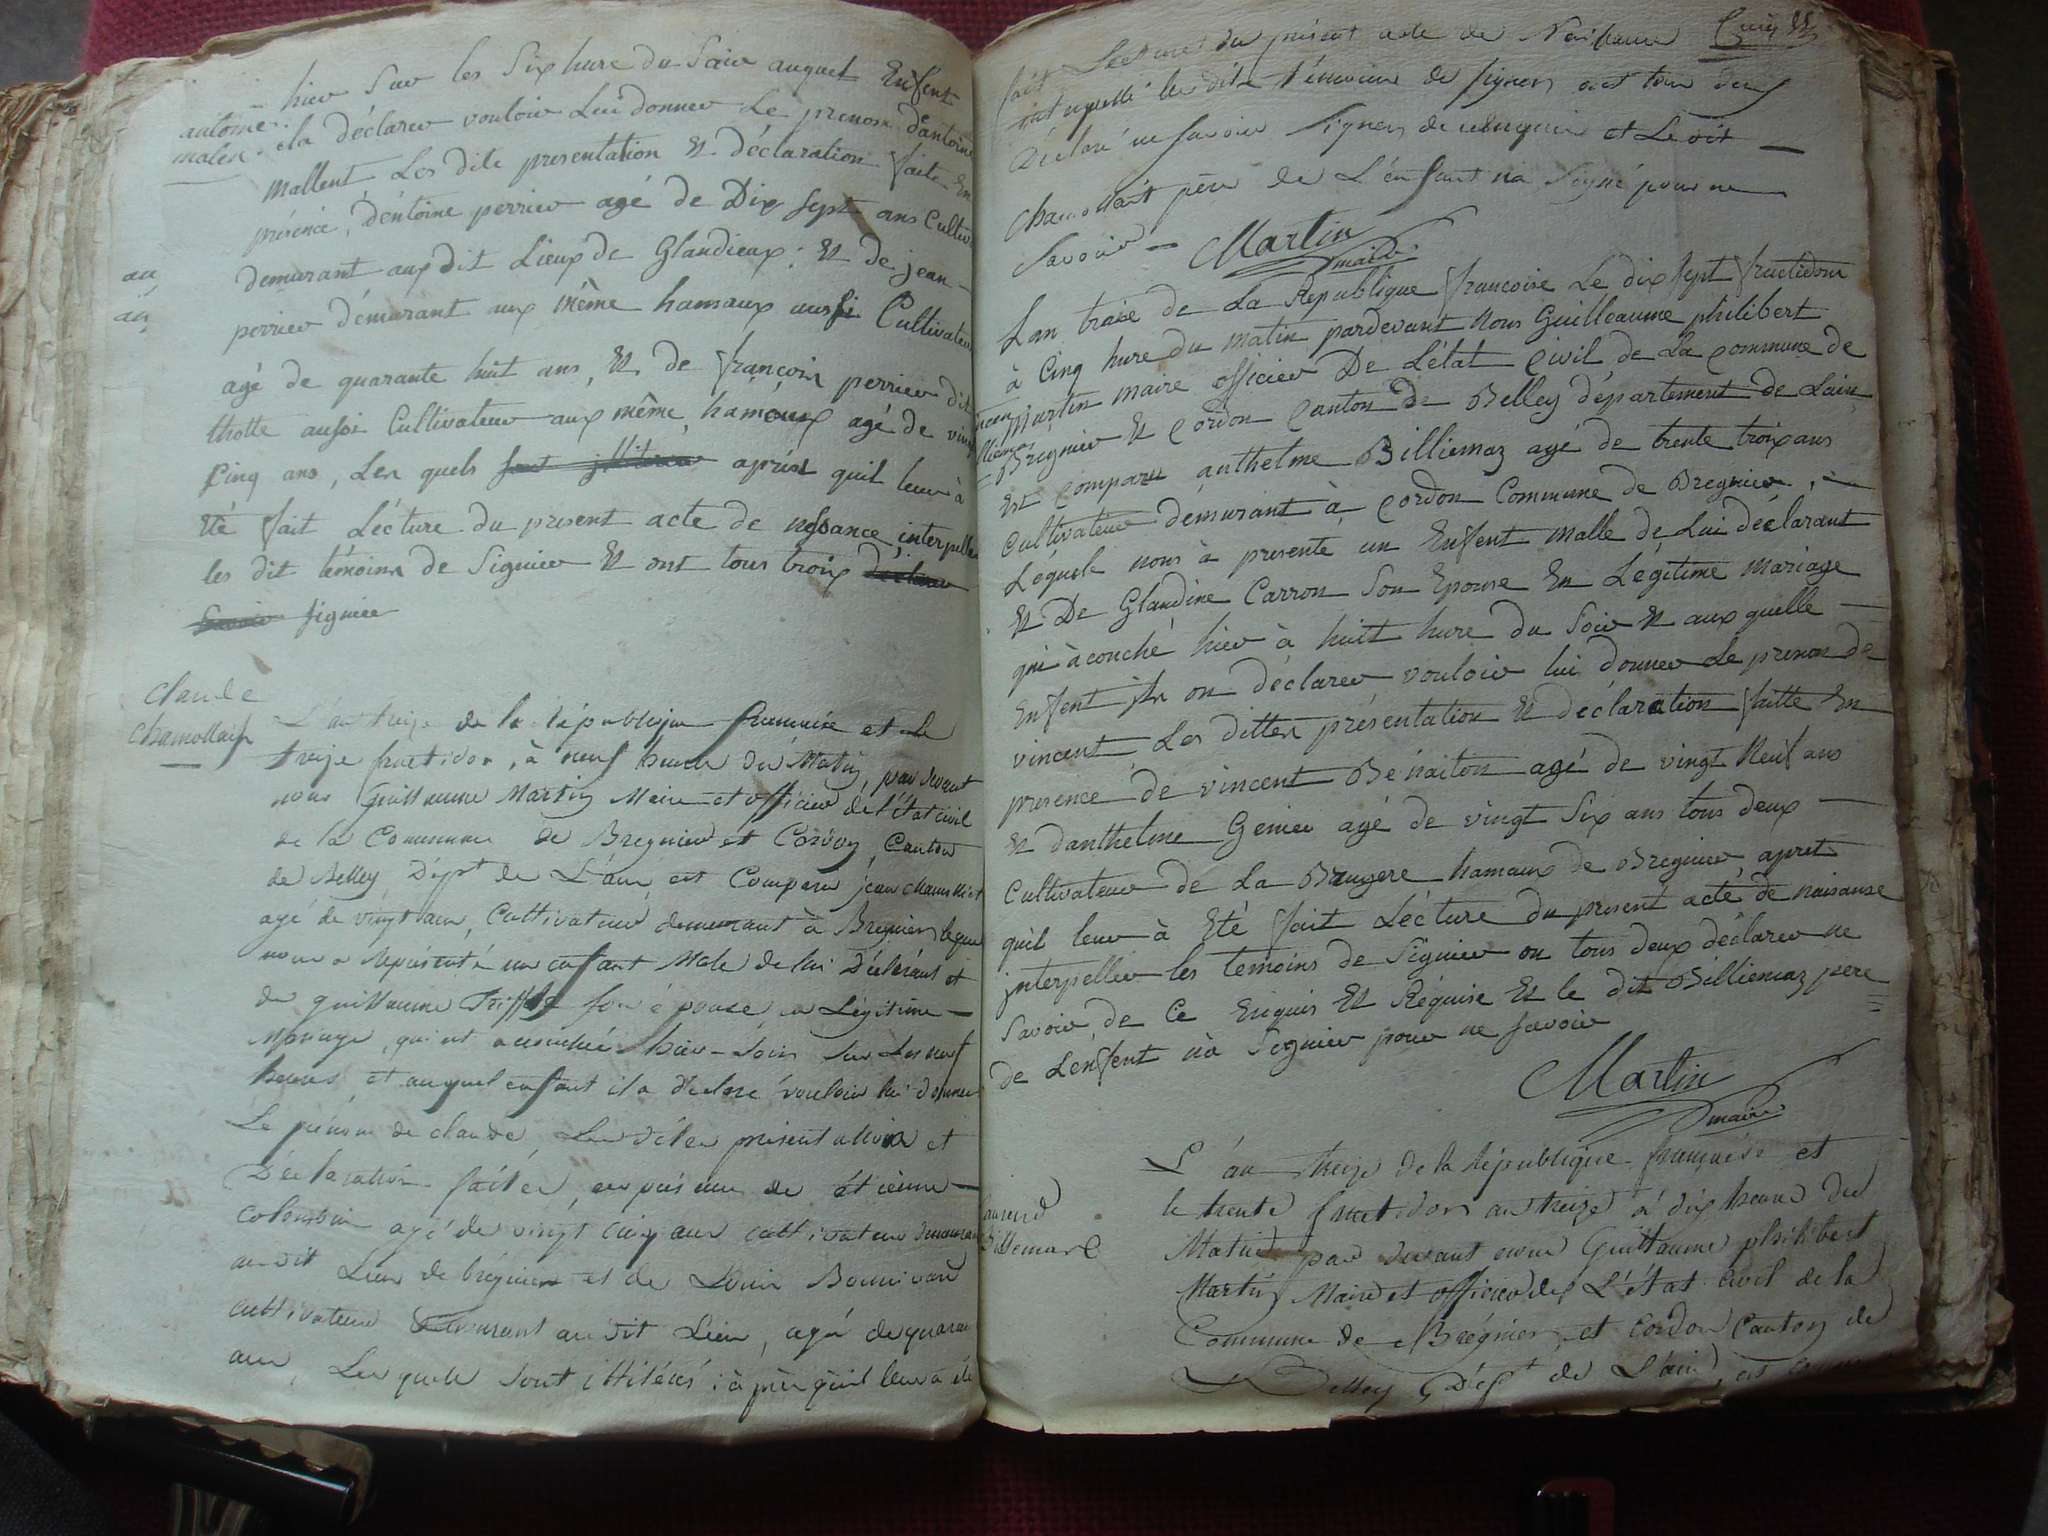 antoine
malen
hier Sur les Six hure du Soir auquel Enfent
ila déclarer vouloir Lui donner Le prenom d'antoine
Mallent Les dite presentation Et déclaration faite En
présence, d'éntoine perrier agé de Dix Sept ans Cultiv
demurant aux dit Lieux de Glandieux; Et de jean
perrier démurant aux même hamaux aussi Cultivateur
agé de quarante huit ans, Et de françois perrier dit
thotte aussi Cultivateur aux même, hamaux agé de vingt
Cinq ans, Les quels après quil leur à
Eté fait Lécture du present acte de nessance interpellé
les dit témoins de Signier Et ont tous troix déclarer
Savoir signier
Claude
Chamollait
L'an treize de la république francaise et le
treize fructidor, à neuf heure du Matin, par devant
nous Guillaume Martin Maire et officier de l'état civil
de la Commune de Bregnier et Cordon, Canton
de Belley Dépt de L'ain est Comparu jean chamollait
agé de vingt ans, Cultivateur demeurant à Bregnier lequel
nous a réprésenté un enfant Male de lui Déclarant et
de guillaume son épouse en Légitime
Mariage, qui est accouchée hier Soir Sur Les neuf
heures et auquel enfant il a déclaré vouloir lui donner
Le prénom de claude Les dites présentation et
Déclaration faites, en présence de étienne
colombin agé de vingt cinq ans cultivateur demeurant
au dit Lieu de brégnier et de Louis Bonnivard
cultivateur Demeurant au dit Lieu, agé de quarante
ans, Les quels sont illitérés; après qu'il leur a été
fait Lecture du présent acte de Naissance
interpellé les dits témoins de signer ont tous deux
Déclaré ne savoir Signer de ce enquis et Le dit
Chamollait père de L'enfant na Signé pour ne
Savoir
Martin
maire
Lan traise de La République francoise Le dix sept fructidor
à Cinq hure du matin pardevant Nous Guilleaume philibert
Martin maire officier De L'état Civil de La Commune de
Bregnier Et Cordon Canton de Belley département de Lain
Est Comparu anthelme Billiemaz agé de trente troix ans
Cultivateur démurant à Cordon Commune de Bregnier,
Léquele nous à presenté un Enfent Malle de Lui déclarant
Et De Glaudine Carron Son Epouse En Légitime Mariage
qui à couché hier à huit hure du Soir Et aux quelle
Enfent on déclarer vouloir lui donner Le prenom de
vincent Les ditten présentation Et déclaration faitte En
presence de vincent Benaiton agé de vingt Neuf ans
Et danthelme Genier agé de vingt Six ans tous deux
Cultivateur de La Bruyere hamaux de Bregnier, apret
quil leur à Eté fait Lécture du présent acte de naisanse
jnterpeller les temoins de Signier on tous deux déclarer ne
Savoir de Ce Enquis Et Réquise Et le dit Billiemaz pere
de L'enfent nà Signier pour ne savoir
Martin
maire
L'an treize de la république française et
le trente fructidor an treize à dix heure du
Matin par devant nous Guillaume philibert
Martin Maire et officier de L'état civil de la
Commune de Brégnier, et cordon Canton de
Belley, Dépt de L'ain, est